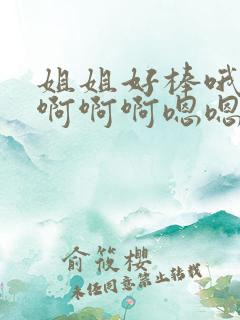 姐姐好棒哦
啊啊啊嗯嗯
俞筱樱
未经同意禁止转载